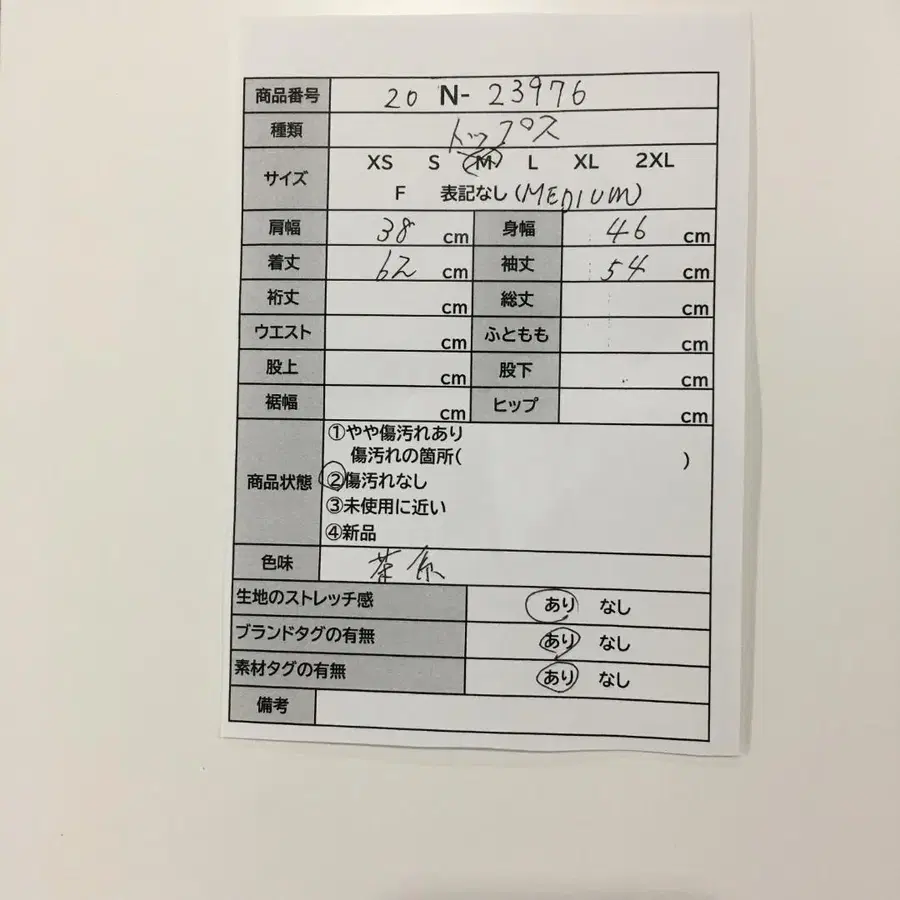 商品番号 20 N- 23976
種類 トップス
サイズ XS S M L XL 2XL
F 表記なし (MEDIUM)
肩幅 38 cm 身幅 46 cm
着丈 62 cm 袖丈 54 cm
裄丈 cm 総丈 cm
ウエスト cm ふともも cm
股上 cm 股下 cm
裾幅 cm ヒップ cm
商品状態 ①やや傷汚れあり
傷汚れの箇所( )
②傷汚れなし
③未使用に近い
④新品
色味 茶系
生地のストレッチ感 あり なし
ブランドタグの有無 あり なし
素材タグの有無 あり なし
備考